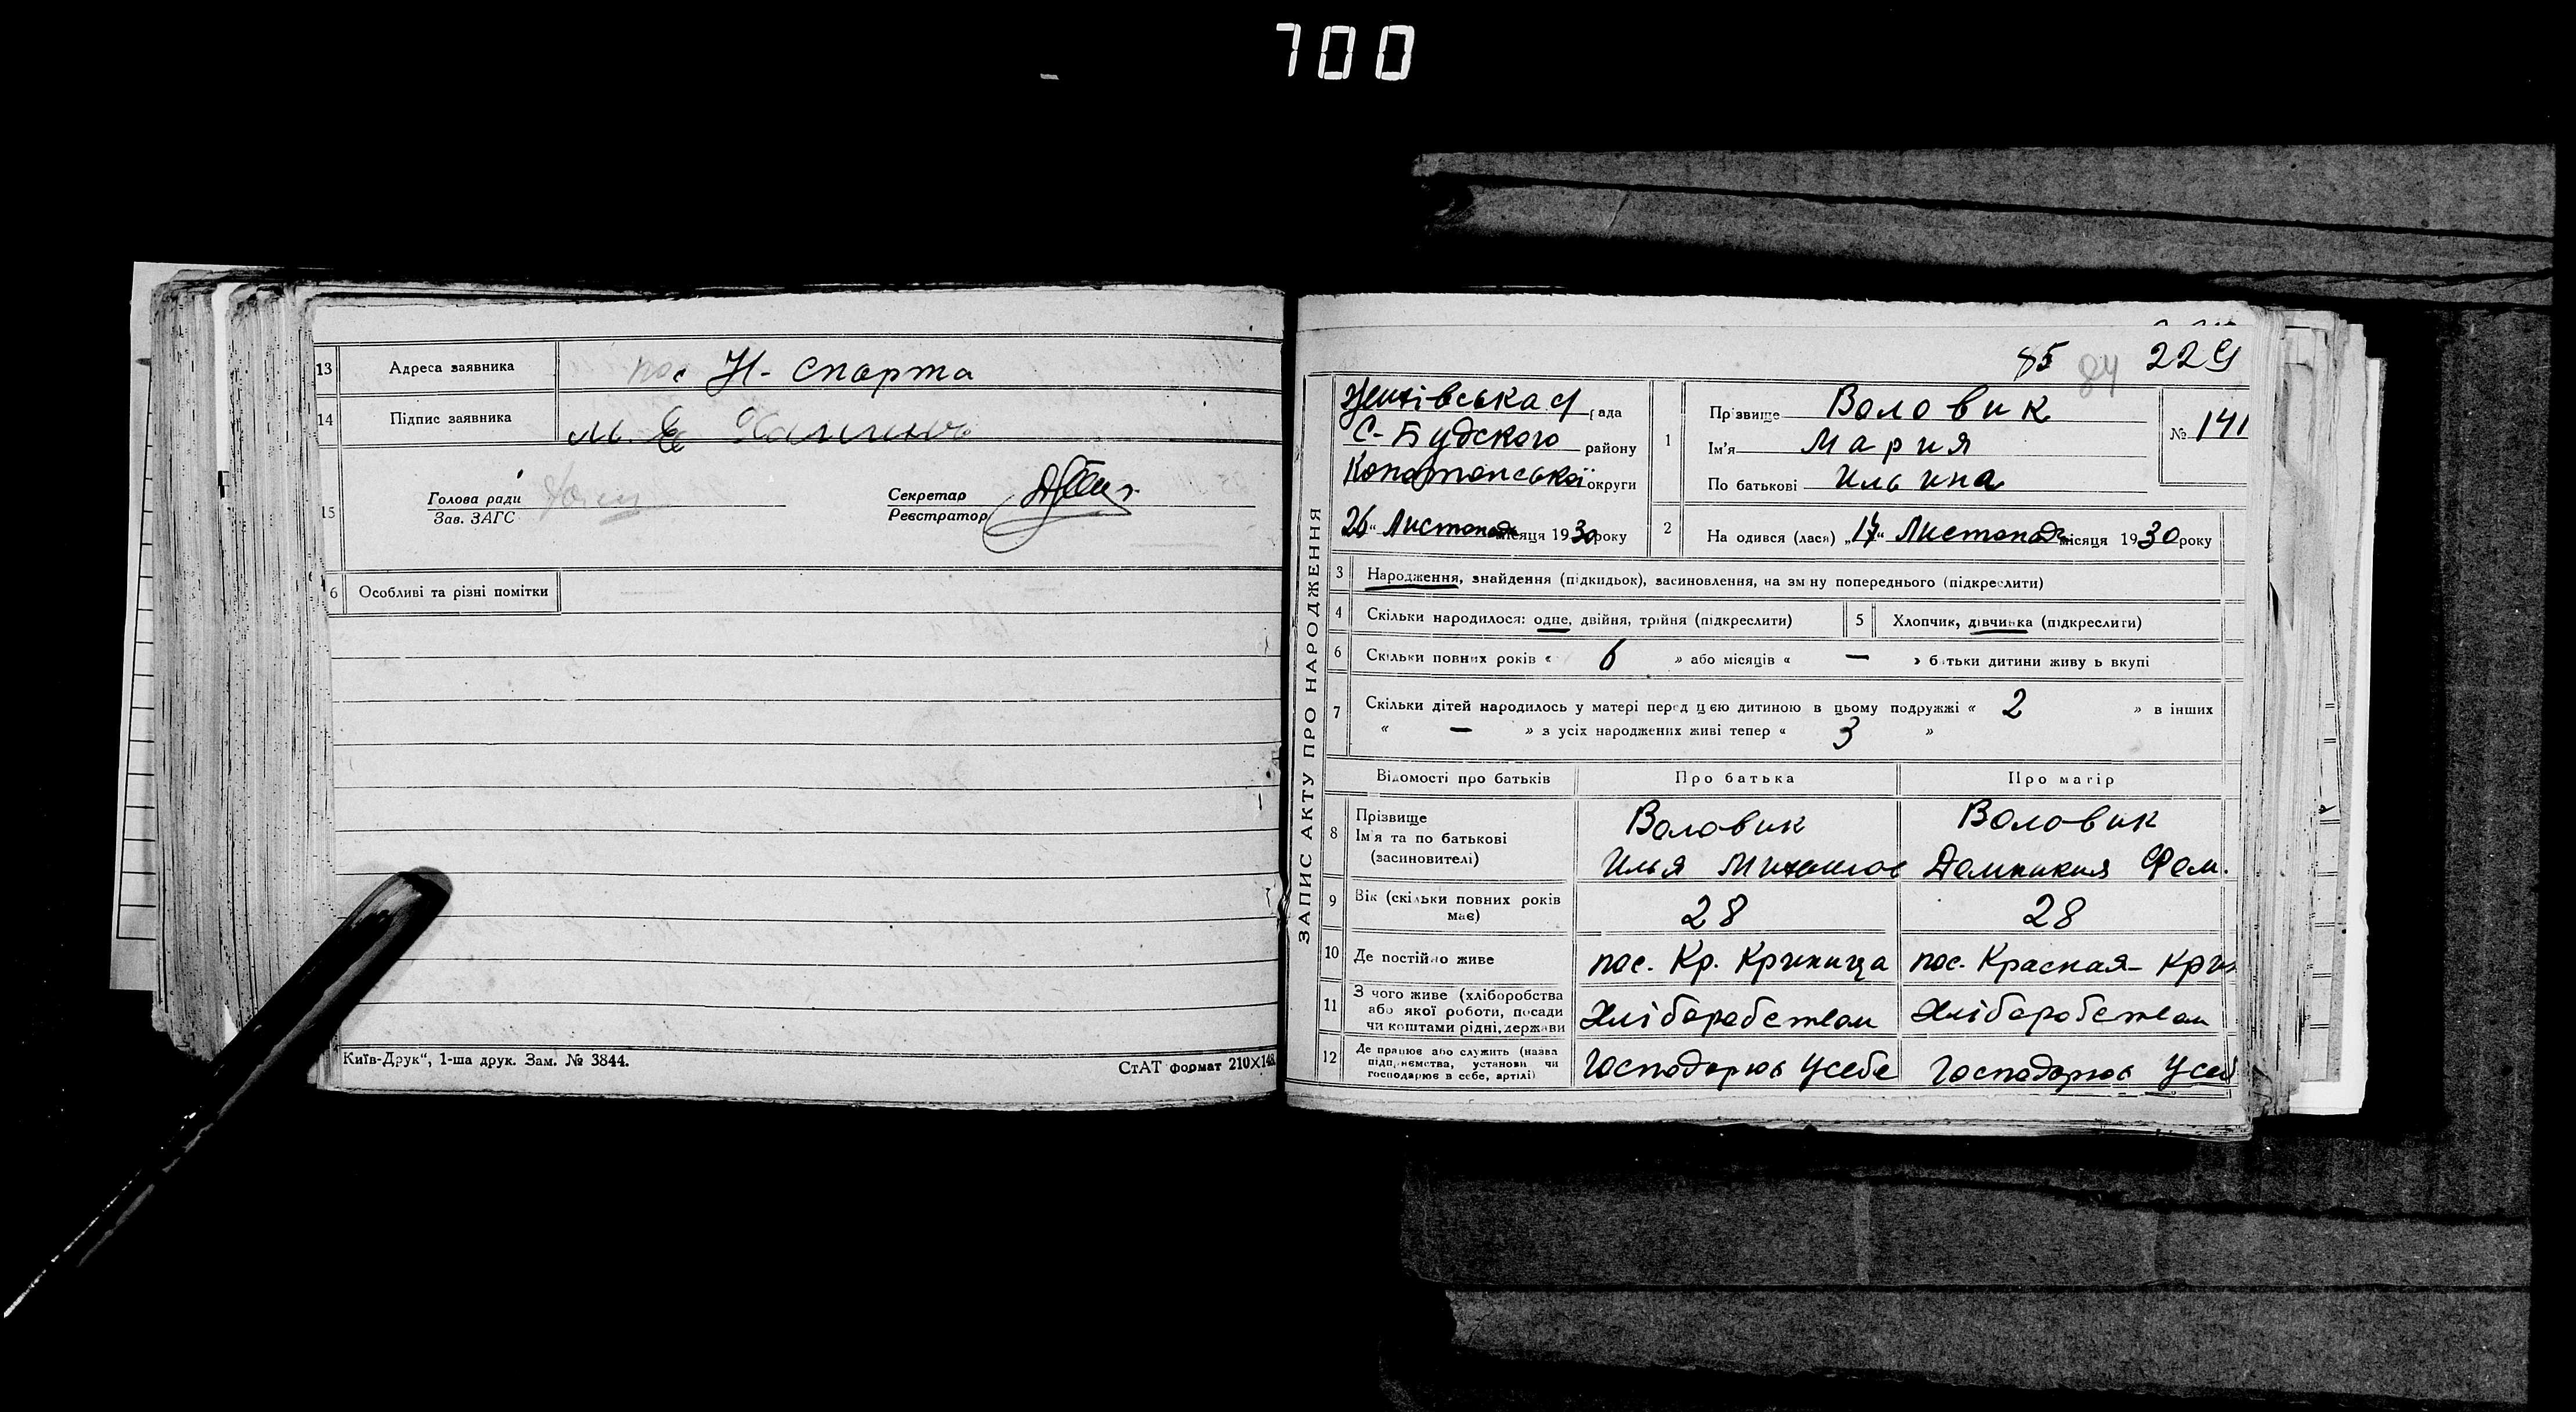 700
13 Адреса заявника пос Н- Спарта
14 Підпис заявника М. Е
15 Голова ради
Зав. ЗАГС
Секретар
Реєстратор
6 Особливі та різні помітки
Київ-Друк“, 1-ша друк. Зам. № 3844.
СтАТ формат 210×148
85 84 229
ЗАПИС АКТУ ПРО НАРОДЖЕННЯ
рада
С-Будского району
Конотопської округи
26“ Листопад місяця 1930 року
1 Прізвище Воловик
Ім'я Мария
По батькові Ильина
№ 141
2 На одився (лася) „17“ Листопад місяця 1930 року
3 Народження, знайдення (підкидьок), засиновлення, на зміну попереднього (підкреслити)
4 Скільки народилося: одне, двійня, трійня (підкреслити)
5 Хлопчик, дівчинка (підкреслити)
6 Скільки повних років « 6 » або місяців « — » батьки дитини живуть вкупі
7 Скільки дітей народилось у матері перед цією дитиною в цьому подружжі « 2 » в інших
« — » з усіх народжених живі тепер « 3 »
Відомості про батьків Про батька Про матір
8 Прізвище
Ім'я та по батькові
(засиновителі)
Воловик
Илья Михаилов
Воловик
Домникия Фом.
9 Вік (скільки повних років має) 28 28
10 Де постійно живе пос. Кр. Криница пос. Красная- Крин
11 З чого живе (хліборобства
або якої роботи, посади
чи коштами рідні, держави
Хліборобством Хліборобством
12 Де працює або служить (назва
підприємства, установи чи
господарює в себе, артілі)
Господарює усебе Господарює усеб